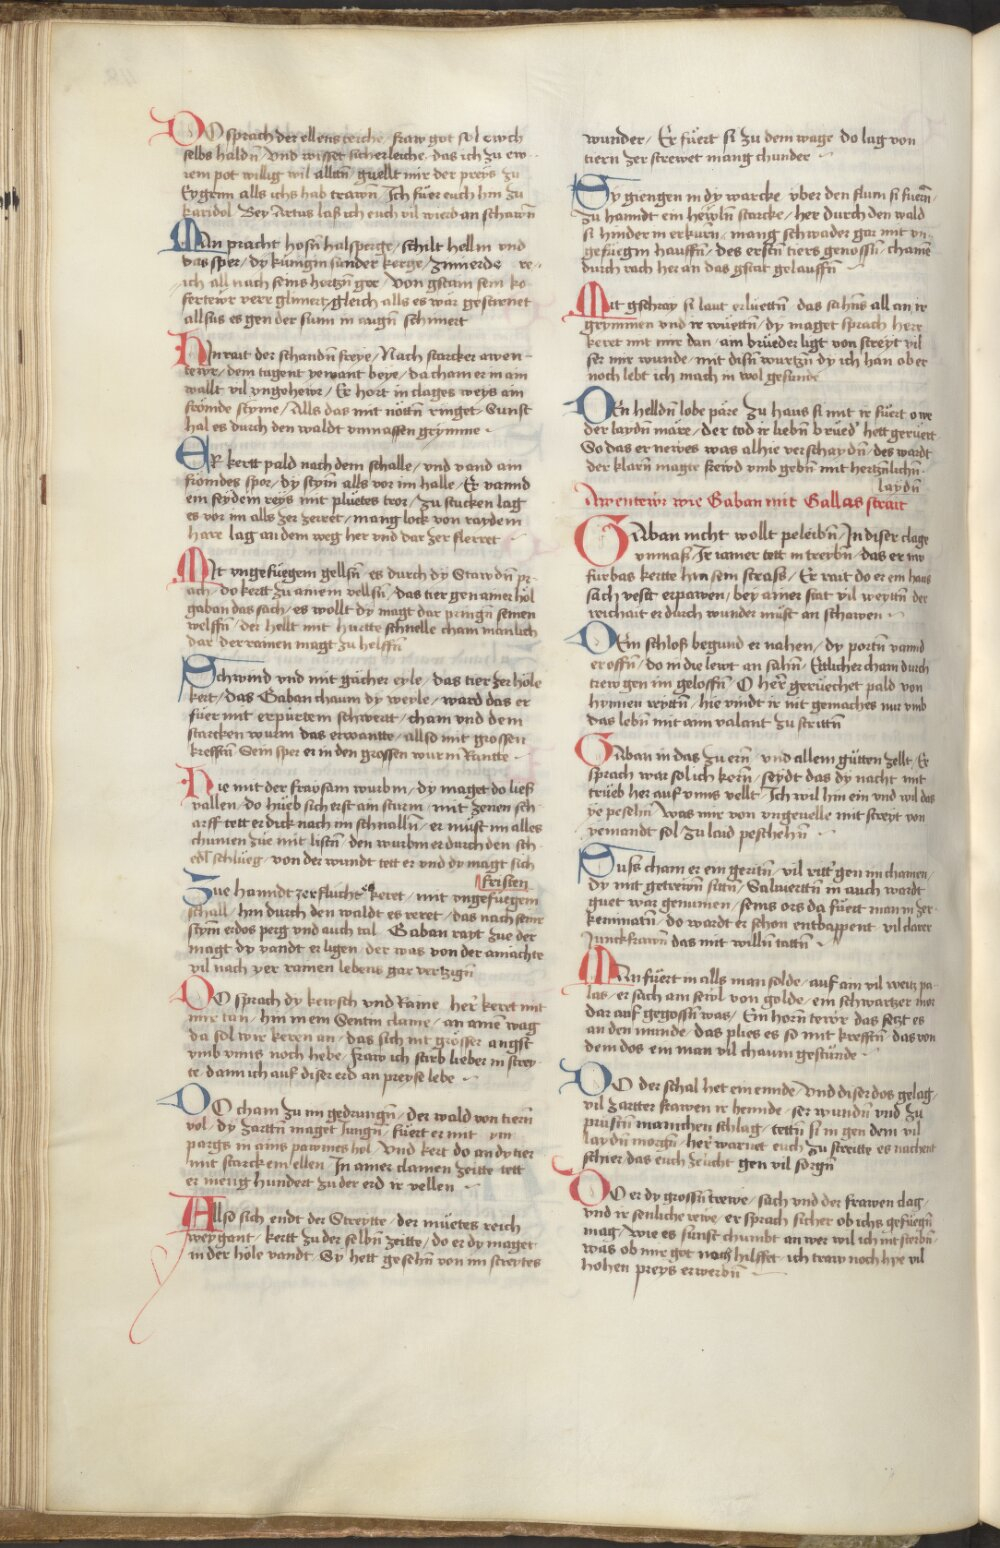 DO sprach der ellens reiche / fraw got sol ewch
selbs haldn̄ / vnd wisset sicherleiche das ich zu ew
rem pot willig wil allain̄ / quellt mir der preys zu
Eygem alls ichs hab trawn̄ Ich füer euch hin zu
karidol Bey Artus laß ich euch vil wierd an schawn̄
MAn pracht hosn̄ halsperge / schilt hellm vnd
das sper / dy künigin sunder kerge / zimierde
ich all nach seins hertzn̄ ger / von gstain sein
fertewr verr glinnert / gleich alls es war gestirnet
allsus es gen der sunn in augn̄ schinert
HIn rait der schandn̄ freye / Nach starcker awen
tewr / dem tugent ye want beye / da cham er in ain
wallt vil vngehewr / Er hort in clages weys ain
frömde styme / Alls das mit nöttn̄ ringet Sunst
hal es durch den waldt vnmassen grymme
ER kertt pald nach dem schalle / vnd vand am
frömdes spor / dy stym alls vor im halle / Er vannd
ein seydem reys mit plüetes tror / zu stucken lag
es vor im alls zer zerret / mang lock von raydem
hare lag an dem weg her vnd dar zer flerret
MIt vngefüegem gellfn̄ es durch dy Stawdn̄ pr
ach / do kertt zu ainem vellsn̄ / das tier gen ainer höl
gaban das sach / es wollt dy magt dar pringn̄ seinen
welffn̄ / der hellt mit hurtte schnelle cham manlich
dar der rainen magt zu helffn̄
SChwind vnd mit gächer eyle / das tier zer höle
kert / das Gaban chaum dy weyle / ward das er
füer mit erpürtem schwertt / cham vnd dem
starcken wurm das erwantte / allso mit grossen
krefftn̄ Sein sper er in den grossen wurm Rantte
HIe mit der fraysam wurbm / dy maget do ließ
vallen / do hüeb sich erst ain sturm / mit zenen sch
arff tett er dick nach im schnalln̄ / er müst im alles
chumen züe mit listn̄ / den wurbm er durch den sch
edl schlüeg / von der wundt tett er vnd dy magt sich
fristen
Zue hanndt zer flucht es keret / mit vngefüegem
schall / hin durch den waldt es reret / das nach seinr
stym erdos perg vnd auch tal Gaban rayt zue der
magt dy vandt er ligen / der was von der amachte
vil nach yer rainen lebens gar vertzign̄
DO sprach dy kewsch vnd Raine her keret mit
mir tan / hin in ein Sentin claine / an aine wag
da sol wir keren an / das sich mit grosser angst
vmb vnns noch hebe / fraw ich stirb lieber in strey
te dann ich auf diser erd an preyse lebe
DO cham zu im gedrungn̄ / der wald von tiern̄
vol / dy zarttn̄ maget Jungn̄ / fuert er mit ym
pargs in ains pawmes hol vnd kert do an dy tier
mit starckem ellen In ainer clainen zeitte tett
er menig hundert zu der erd ir vellen
ALlso sich endt der Streytte / der müetes reich
weygant / kertt zu der selbn̄ zeitte / do er dy maget
in der höle vandt Sy hett gesehn̄ von im streytes
wunder / Er füert si zu dem wage do lag von
tiern zer strewet mang chunder
SY giengen in dy warcke vber den flum si fuern̄
zu hanndt ein hewln̄ starcke / her durch den wald
si hinder in erkurn̄ / mang schwader gar mit vn
gefüegm hauffn̄ / des erstn̄ tiers genossn̄ / chamē
durch rach her an das gstat gelauffn̄
MIt gschray si laut erluettn̄ das sahns all an ir
grymmen vnd ir wüettn̄ / dy maget sprach herr
keret mit mir dan / am brüeder ligt von streyt vil
ser mir wunde / mit disn̄ wurtzn̄ dy ich han ober
noch lebt ich mach in wol gesunde
DEn helldn̄ lobe päre zu haus si mit ir füert o we
der laydn̄ märe / der tod ir liebn̄ brüed' hett gerüert
So das er newes was alhie verschaydn̄ / des wardt
der klarn̄ magte frewd vmb gebn̄ mit hertznlichn̄
laydn̄
Awentewr wie Gaban mit Gallas strait
GAban nicht wollt peleibn̄ / In diser clage
vnmaß / Ir iamer tett in treybn̄ / das er nw
fürbas kertte hin sein strass / Er rait do er ein haus
sach vesst erpawen / bey ainer stat vil weyttn̄ der
reichait er durch wunder müst an schawen
DEm schloß begund er nahen / dy portn̄ vannd
er offn̄ / do in die lewt an sahn̄ Ettlicher cham durch
trew gen im geloffn̄ O herr̄ gerüechet pald von
hynnen reyttn̄ / hie vindt ir nit gemaches nur vmb
das lebn̄ mit aim valant zu strittn̄
GAban in das zu ern̄ vnd allem gütten zellt / Er
sprach war sol ich kern̄ / seydt das dy nacht mit
trüeb her auf vnns vellt Ich wil hin ein vnd wil das
ye pesehn̄ Was mir von vngevelle mit streyt von
yemandt sol zu laid peschehn̄
SUss cham er ein geritn̄ / vil ritt' gen im chamen
dy mit getrewn̄ sittn̄ / Saluiertn̄ in auch wardt
guet war genumen / seins ors da füert man in zer
kemmatn̄ do wardt er schon entbappent vil clarer
Junckfrawn̄ das mit willn̄ tattn̄
MAn füert in alls man solde / auf ain vil weitz pa
las / er sach ain sewl von golde / ein schwartzer mor
dar auf gegossn̄ was / Ein horn̄ tewr das setzt es
an den munde das plies es so mit krefftn̄ das von
dem dos ein man vil chaum gestünde
DO der schal het ein ennde / vnd diser dos gelag
vil zartter frawen ir hennde / ser wundn̄ vnd zu
prüstn̄ manichen schlag / tettn̄ si in gen dem vil
laydn̄ morgn̄ / her warnet euch zu streitte es nachent
schier das euch zeucht gen vil sorgn̄
DO er dy grossn̄ trewe / sach vnd der frawen clag /
vnd ir senliche rewe / er sprach sicher ob ichs gefüegn̄
mag / wie es sunst chumbt an wer wil ich nit sterbn̄
was ob mir got noch hilffet / ich traw noch hye vil
hohen preys erwerbn̄